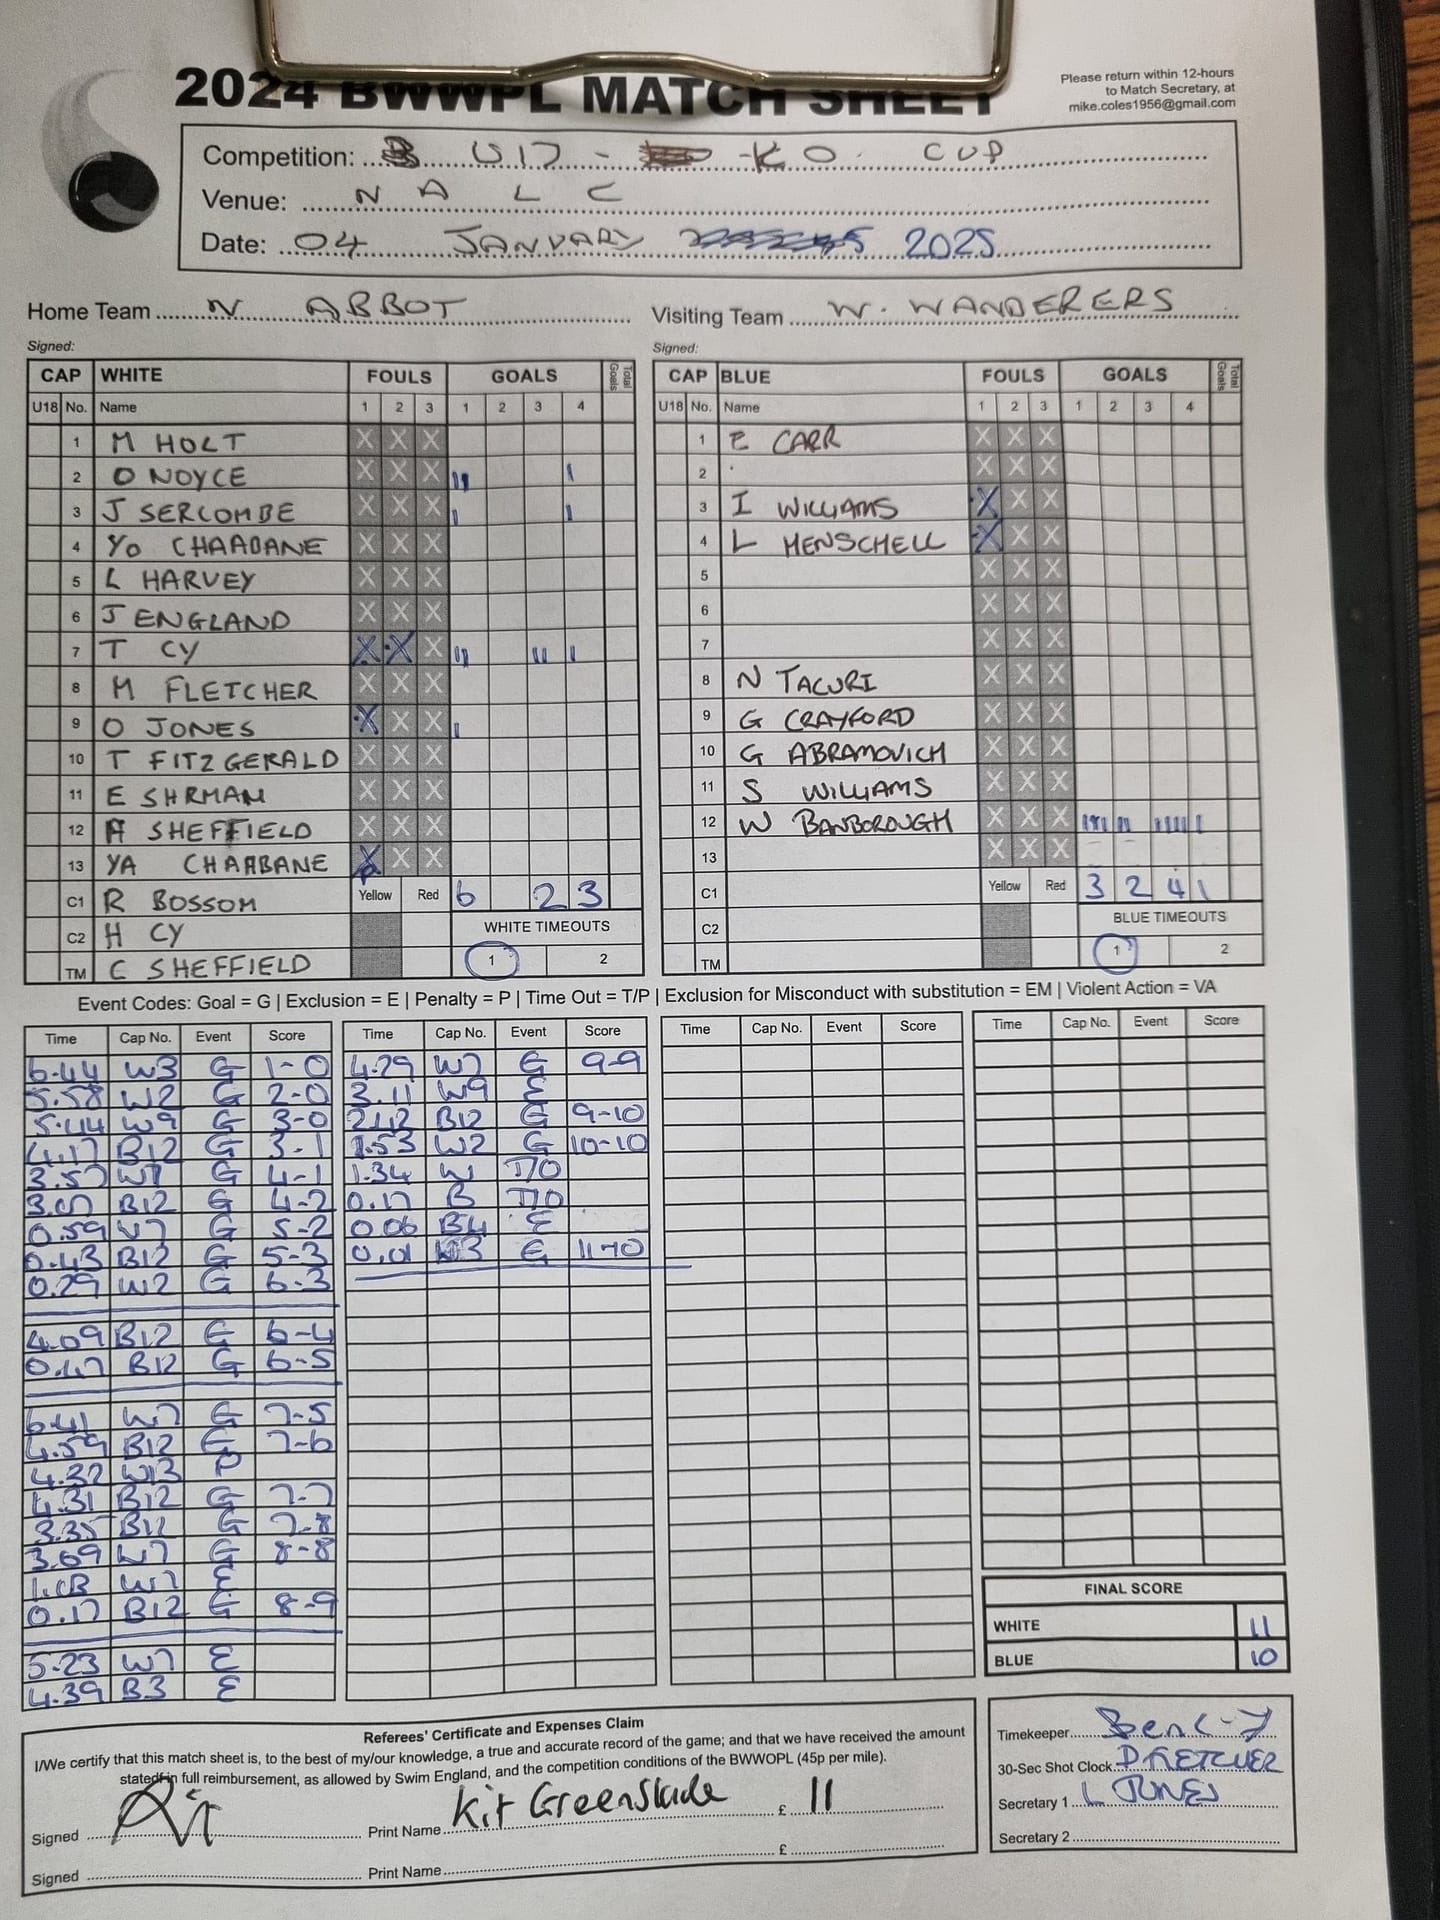 2024 BWWPL MATCH SHEET
Please return within 12-hours
to Match Secretary, at
mike.coles1956@gmail.com
Competition: U17 - KO CUP
Venue: NALC
Date: 04 JANUARY 2025
Home Team N ABBOT
Visiting Team W. WANDERERS
Signed:
CAP WHITE FOULS GOALS Total Goals
U18 No. Name 1 2 3 1 2 3 4
1 M HOLT X X X
2 O NOYCE X X X II I
3 J SERCOMBE X X X I I
4 YO CHAABANE X X X
5 L HARVEY X X X
6 J ENGLAND X X X
7 T CY X X X II II I
8 M FLETCHER X X X
9 O JONES X X X I
10 T FITZGERALD X X X
11 E SHRMAN X X X
12 A SHEFFIELD X X X
13 YA CHAABANE X X X
C1 R BOSSOM Yellow Red 6 2 3
C2 H CY WHITE TIMEOUTS
TM C SHEFFIELD 1 2
Signed:
CAP BLUE FOULS GOALS Total Goals
U18 No. Name 1 2 3 1 2 3 4
1 E CARR X X X
2 X X X
3 I WILLIAMS X X X
4 L HENSCHELL X X X
5 X X X
6 X X X
7 X X X
8 N TACURI X X X
9 G CRAYFORD X X X
10 G ABRAMOVICH X X X
11 S WILLIAMS X X X
12 W BANBOROUGH X X X III II IIII I
13 X X X
C1 Yellow Red 3 2 4 1
C2 BLUE TIMEOUTS
TM 1 2
Event Codes: Goal = G | Exclusion = E | Penalty = P | Time Out = T/P | Exclusion for Misconduct with substitution = EM | Violent Action = VA
Time Cap No. Event Score
6.44 W3 G 1-0
5.58 W2 G 2-0
5.44 W9 G 3-0
4.17 B12 G 3-1
3.57 W7 G 4-1
3.07 B12 G 4-2
0.59 W7 G 5-2
0.43 B12 G 5-3
0.29 W2 G 6-3
4.09 B12 G 6-4
0.47 B12 G 6-5
6.41 W7 G 7-5
4.59 B12 G 7-6
4.32 W13 P
4.31 B12 G 7-7
3.35 B12 G 7-8
3.09 W7 G 8-8
W7 E
0.17 B12 G 8-9
5.23 W7 E
4.39 B3 E
Time Cap No. Event Score
4.29 W7 G 9-9
3.11 W9 E
2.42 B12 G 9-10
1.53 W2 G 10-10
1.34 W T/O
0.17 B T/O
0.06 B4 E
0.01 W3 G 11-10
Time Cap No. Event Score
Time Cap No. Event Score
FINAL SCORE
WHITE 11
BLUE 10
Referees' Certificate and Expenses Claim
I/We certify that this match sheet is, to the best of my/our knowledge, a true and accurate record of the game; and that we have received the amount
stated in full reimbursement, as allowed by Swim England, and the competition conditions of the BWWOPL (45p per mile).
Signed Print Name Kit Greenslade £ 11
Signed Print Name £
Timekeeper
30-Sec Shot Clock D FLETCHER
Secretary 1 L JONES
Secretary 2